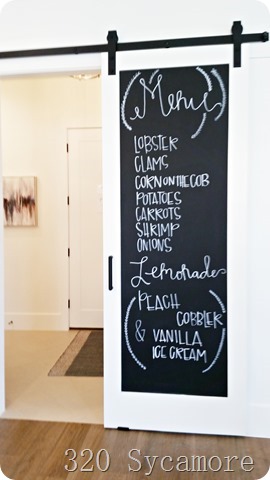 Menu
LOBSTER
CLAMS
CORN ON THE COB
POTATOES
CARROTS
SHRIMP
ONIONS
Lemonade
PEACH
COBBLER
& VANILLA
ICE CREAM
320 Sycamore